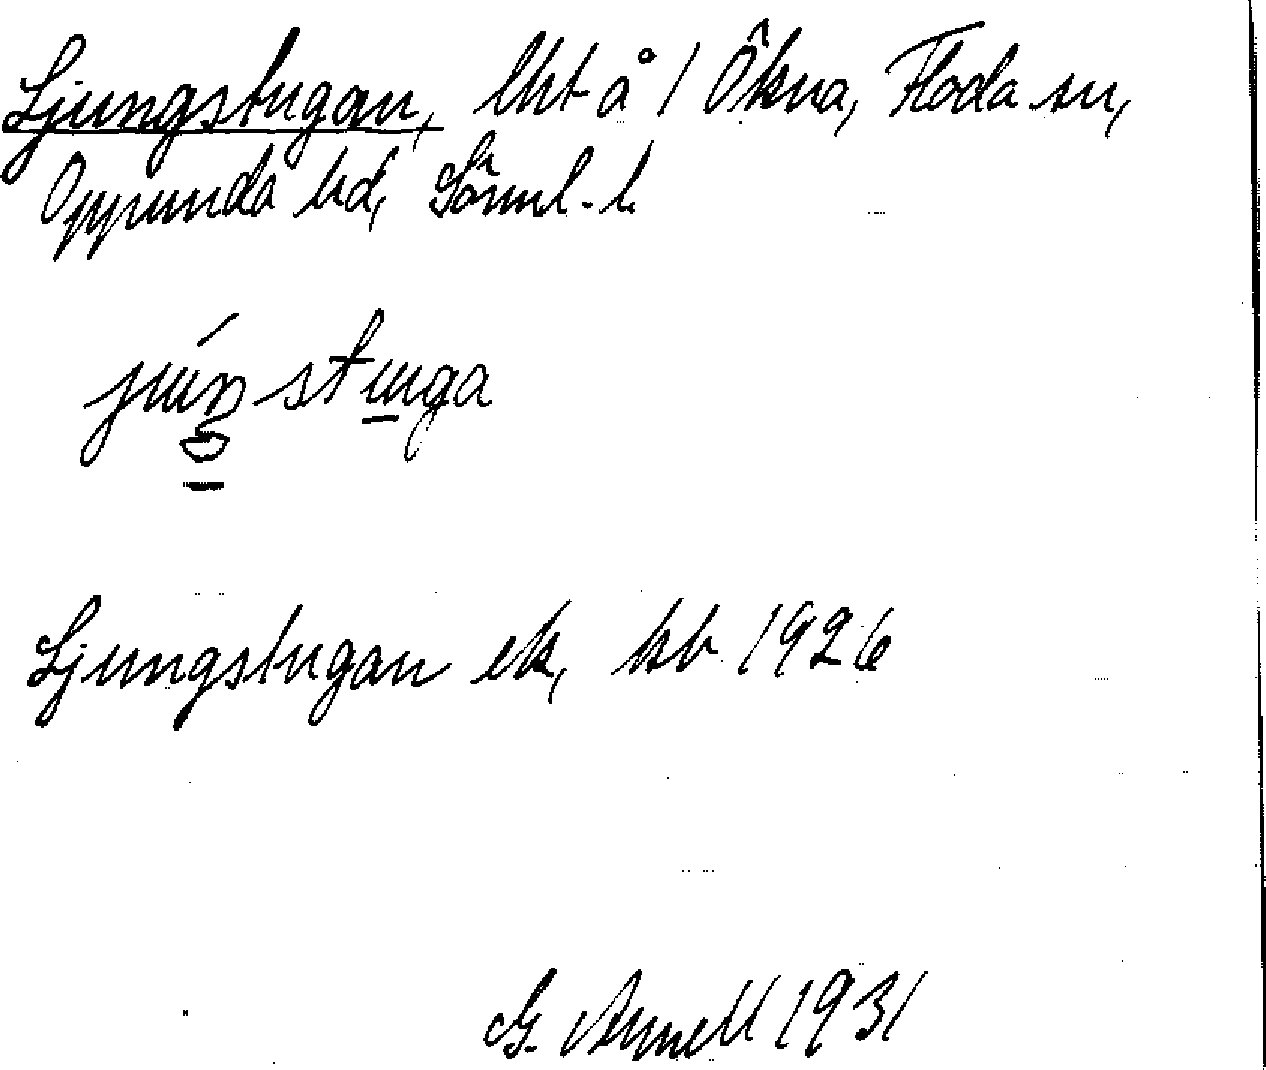 Ljungstugan, lht å 1 Ökna, Floda sn,
Oppunda hd, Söml. l.
júŋstuga
Ljungstugan ek, kb 1926
G. Arnell 1931